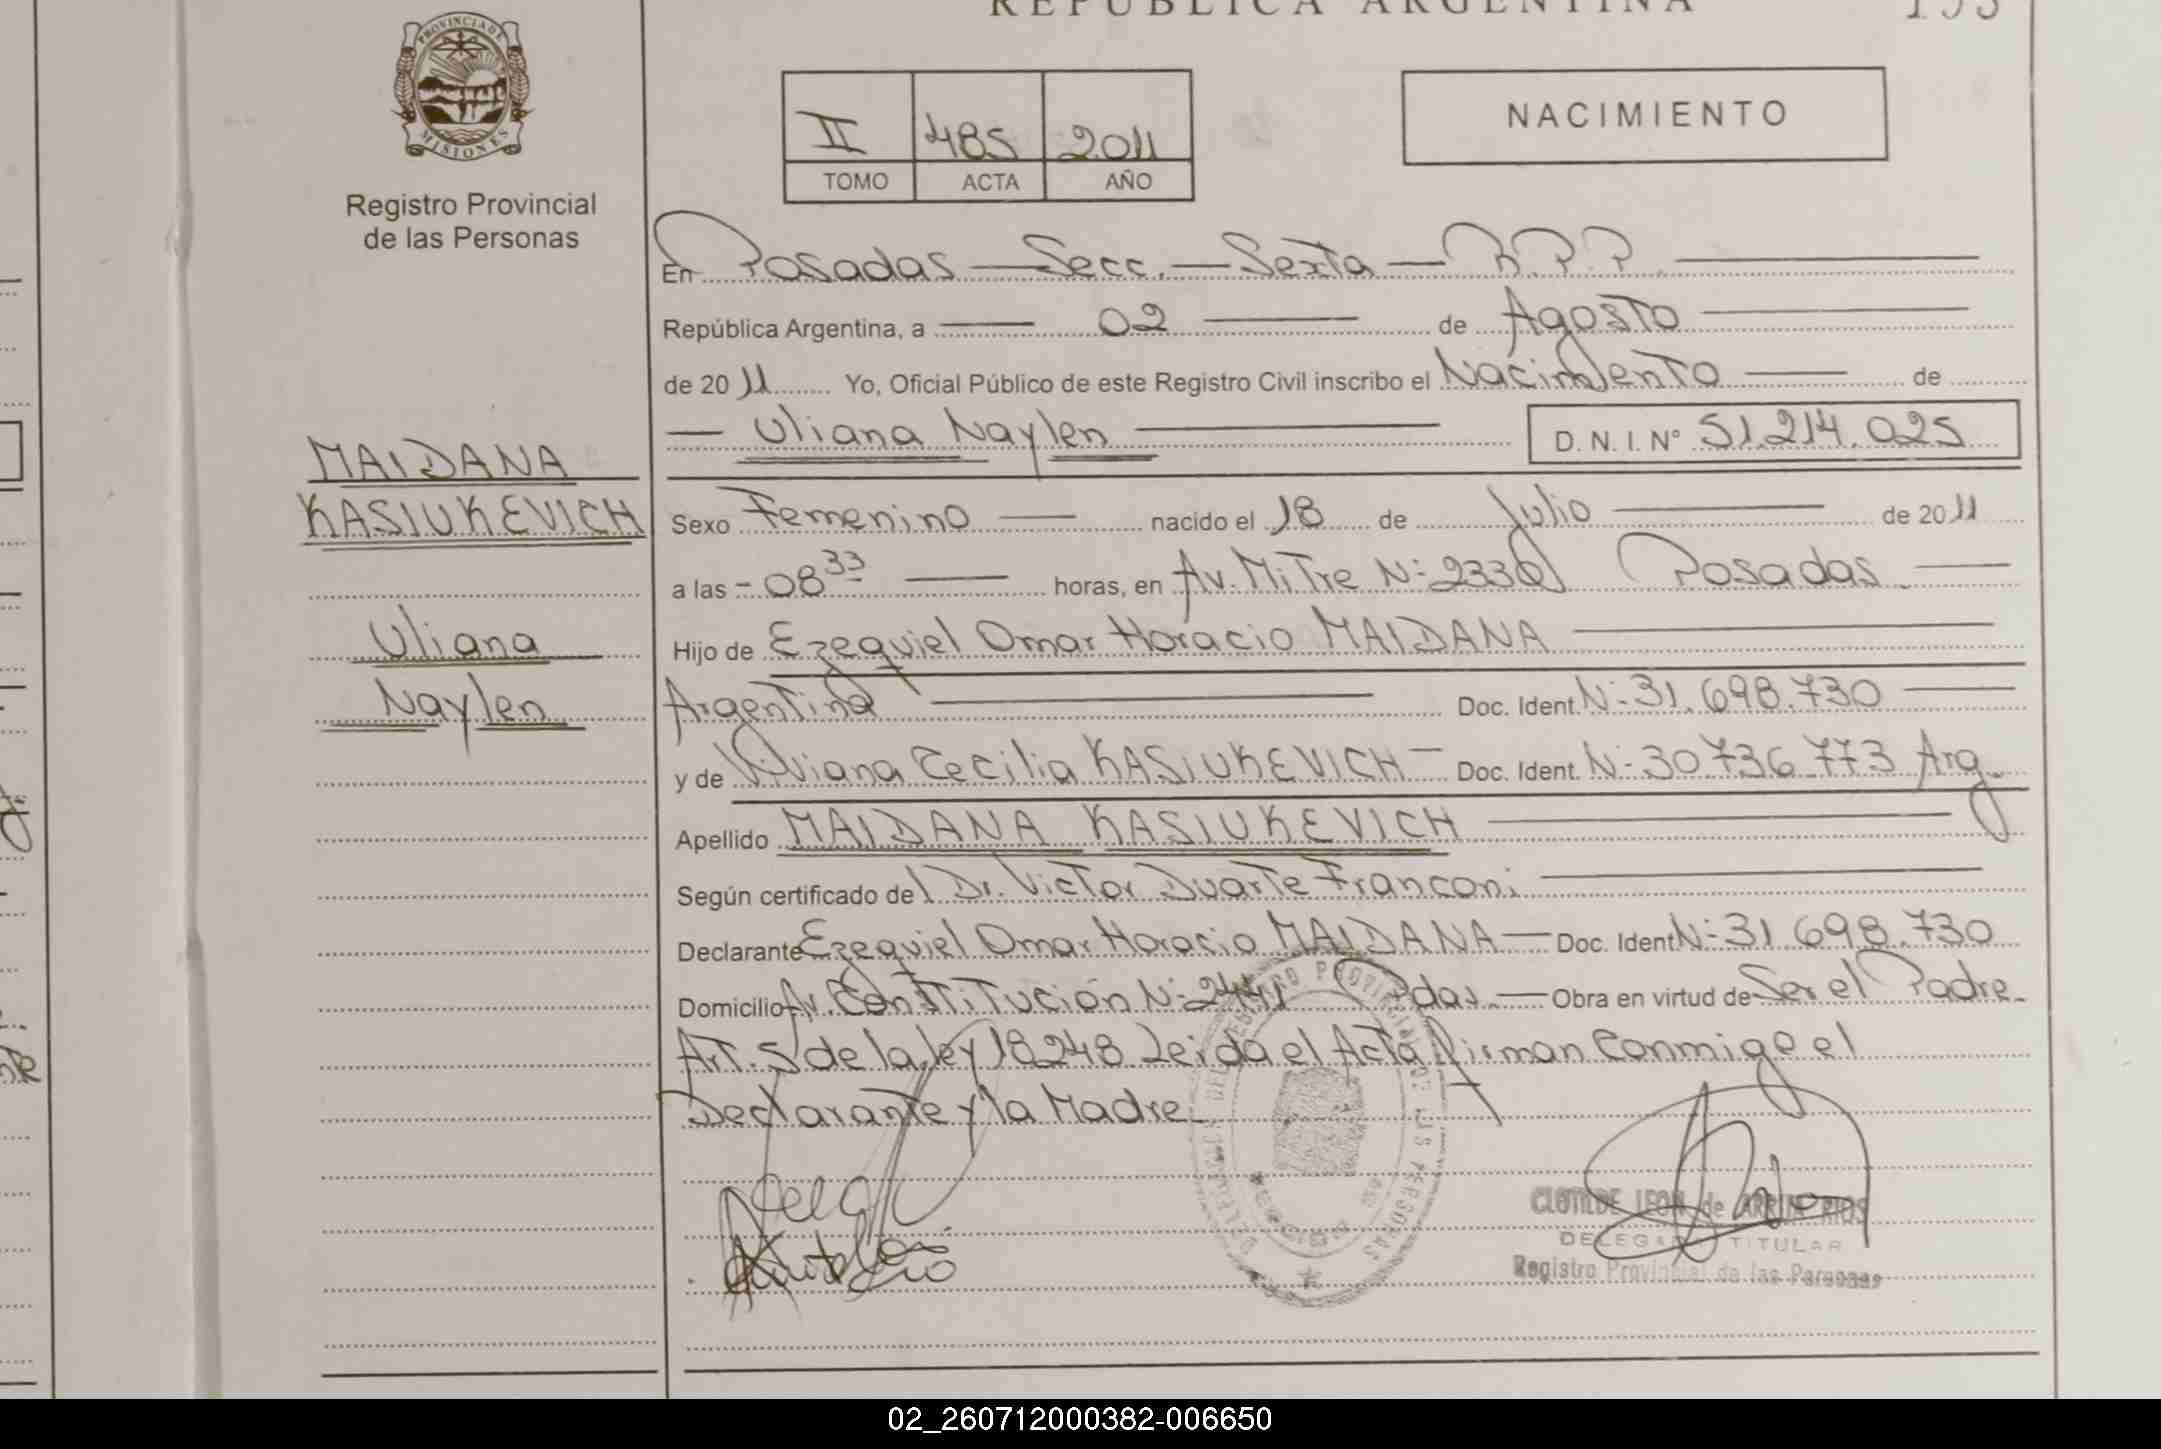 REPUBLICA ARGENTINA
PROVINCIA DE
MISIONES
Registro Provincial
de las Personas
II 485 2011
TOMO ACTA AÑO
NACIMIENTO
En Posadas — Secc. — Sexta — R.P.P.
República Argentina, a — 02 — de Agosto
de 2011 Yo, Oficial Público de este Registro Civil inscribo el Nacimiento — de
— Uliana Naylen — D. N. I. Nº 51.214.025
MAIDANA
KASIUKEVICH
Uliana
Naylen
Sexo Femenino — nacido el 18 de Julio — de 2011
a las - 08 33 — horas, en Av. Mitre N: 2336 Posadas. —
Hijo de Ezequiel Omar Horacio MAIDANA
Argentina — Doc. Ident. N- 31.698.730 —
y de Viviana Cecilia KASIUKEVICH — Doc. Ident. N- 30736773 Arg.
Apellido MAIDANA KASIUKEVICH
Según certificado del Dr. Victor Duarte Franconi
Declarante Ezequiel Omar Horacio MAIDANA — Doc. Ident N- 31.698.730
Domicilio Av. Constitución N: 2441 Pdas. — Obra en virtud de Ser el Padre
Art. 5 de la ley 18248. Leida el Acta firman Conmigo el
Declarante y la Madre
CLOTILDE LEON de ARRUA RIOS
DELEGADO TITULAR
Registro Provincial de las Personas
02_260712000382-006650